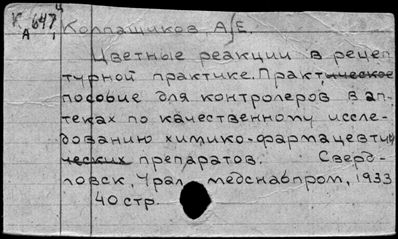 К 647
А
Колпащиков, А. Е.
Цветные реакции в рецеп-
турной практике. Практическое
пособие для контролеров в ап-
теках по качественному иссле-
дованию химико-фармацевти
ческих препаратов. Сверд-
ловск, Урал медснабпром, 1933
40 стр.